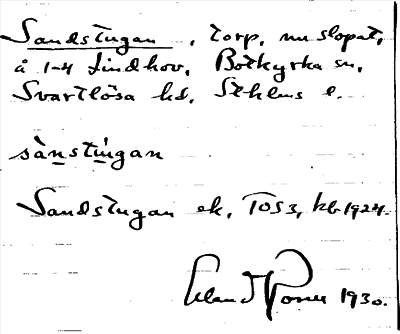 Sandstugan, torp, nu slopat,
å 1-4 Lindhov, Botkyrka sn,
Svartlösa hd, Sthlms l.
sànstúgan
Sandstugan ek, TOS3, kb 1924.
Erland Rosell 1930.